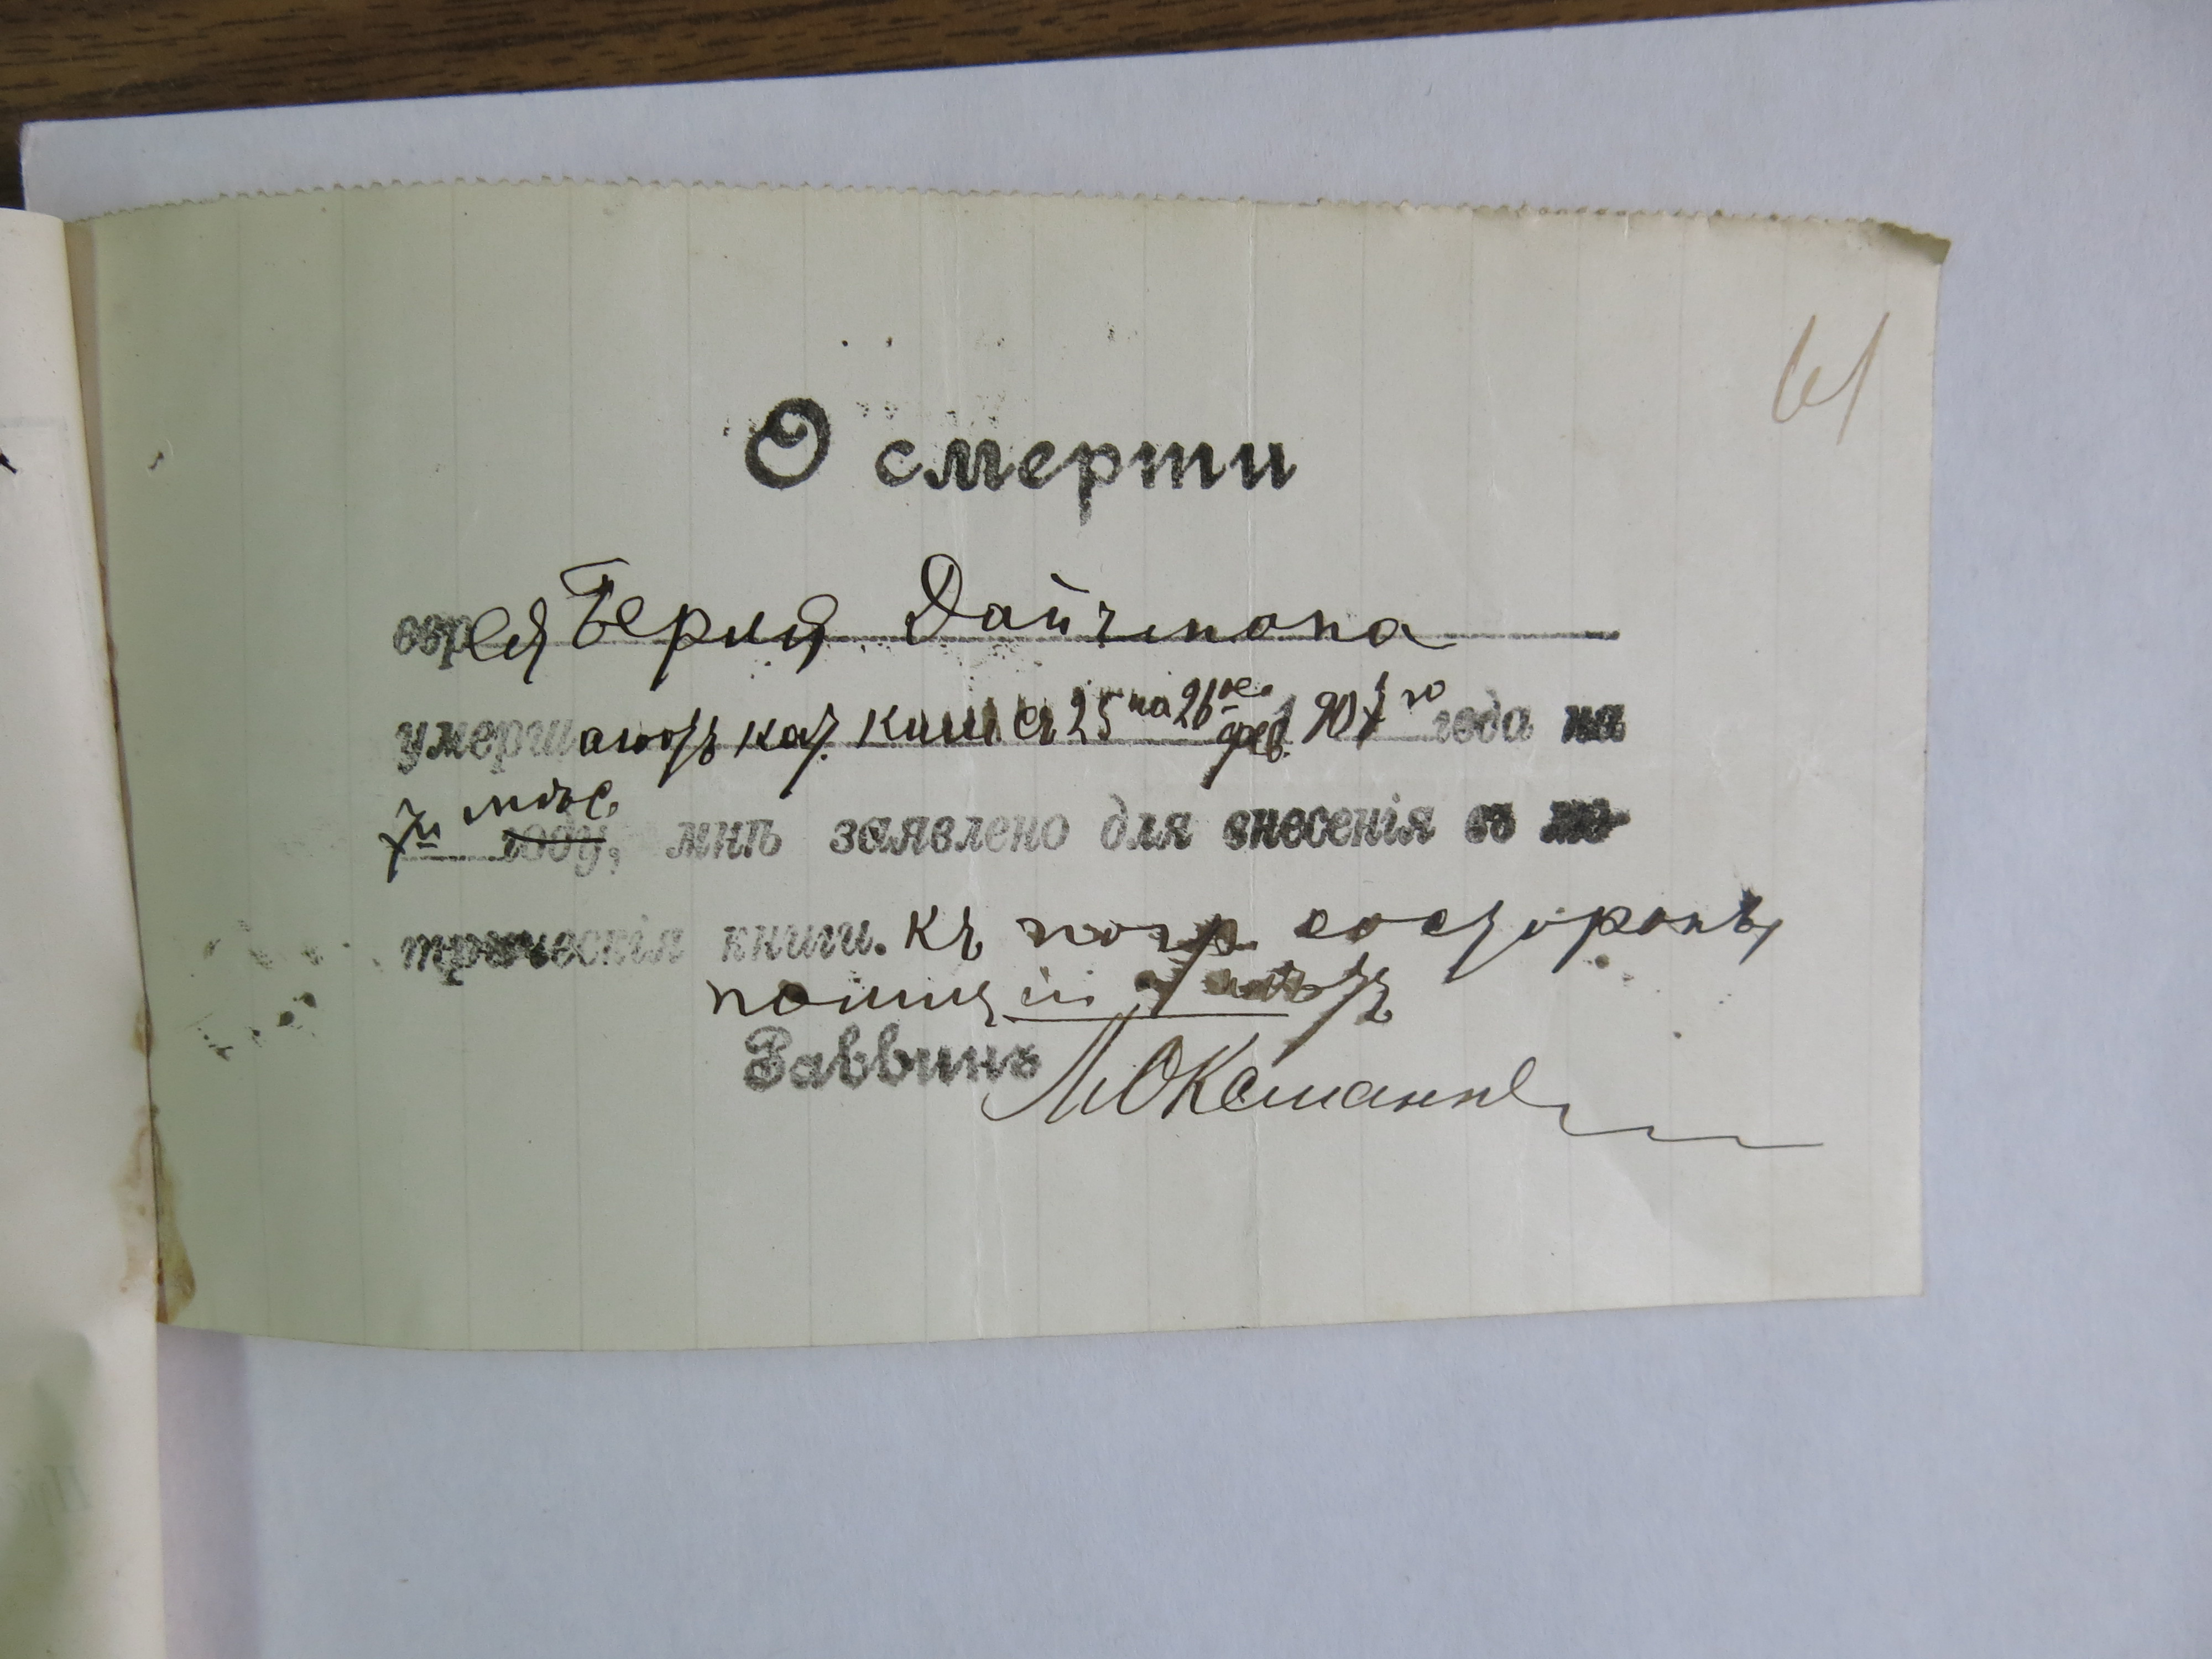 61
О смерти
еврея Берля Дайчмана
умершаго отъ кат. киш. съ 25 на 26ое фев. 1907 го года на
7м мѣс. году, мнѣ заявлено для внесенія въ ме
трическія книги. Къ погр со стороны
полиц
Раввинъ